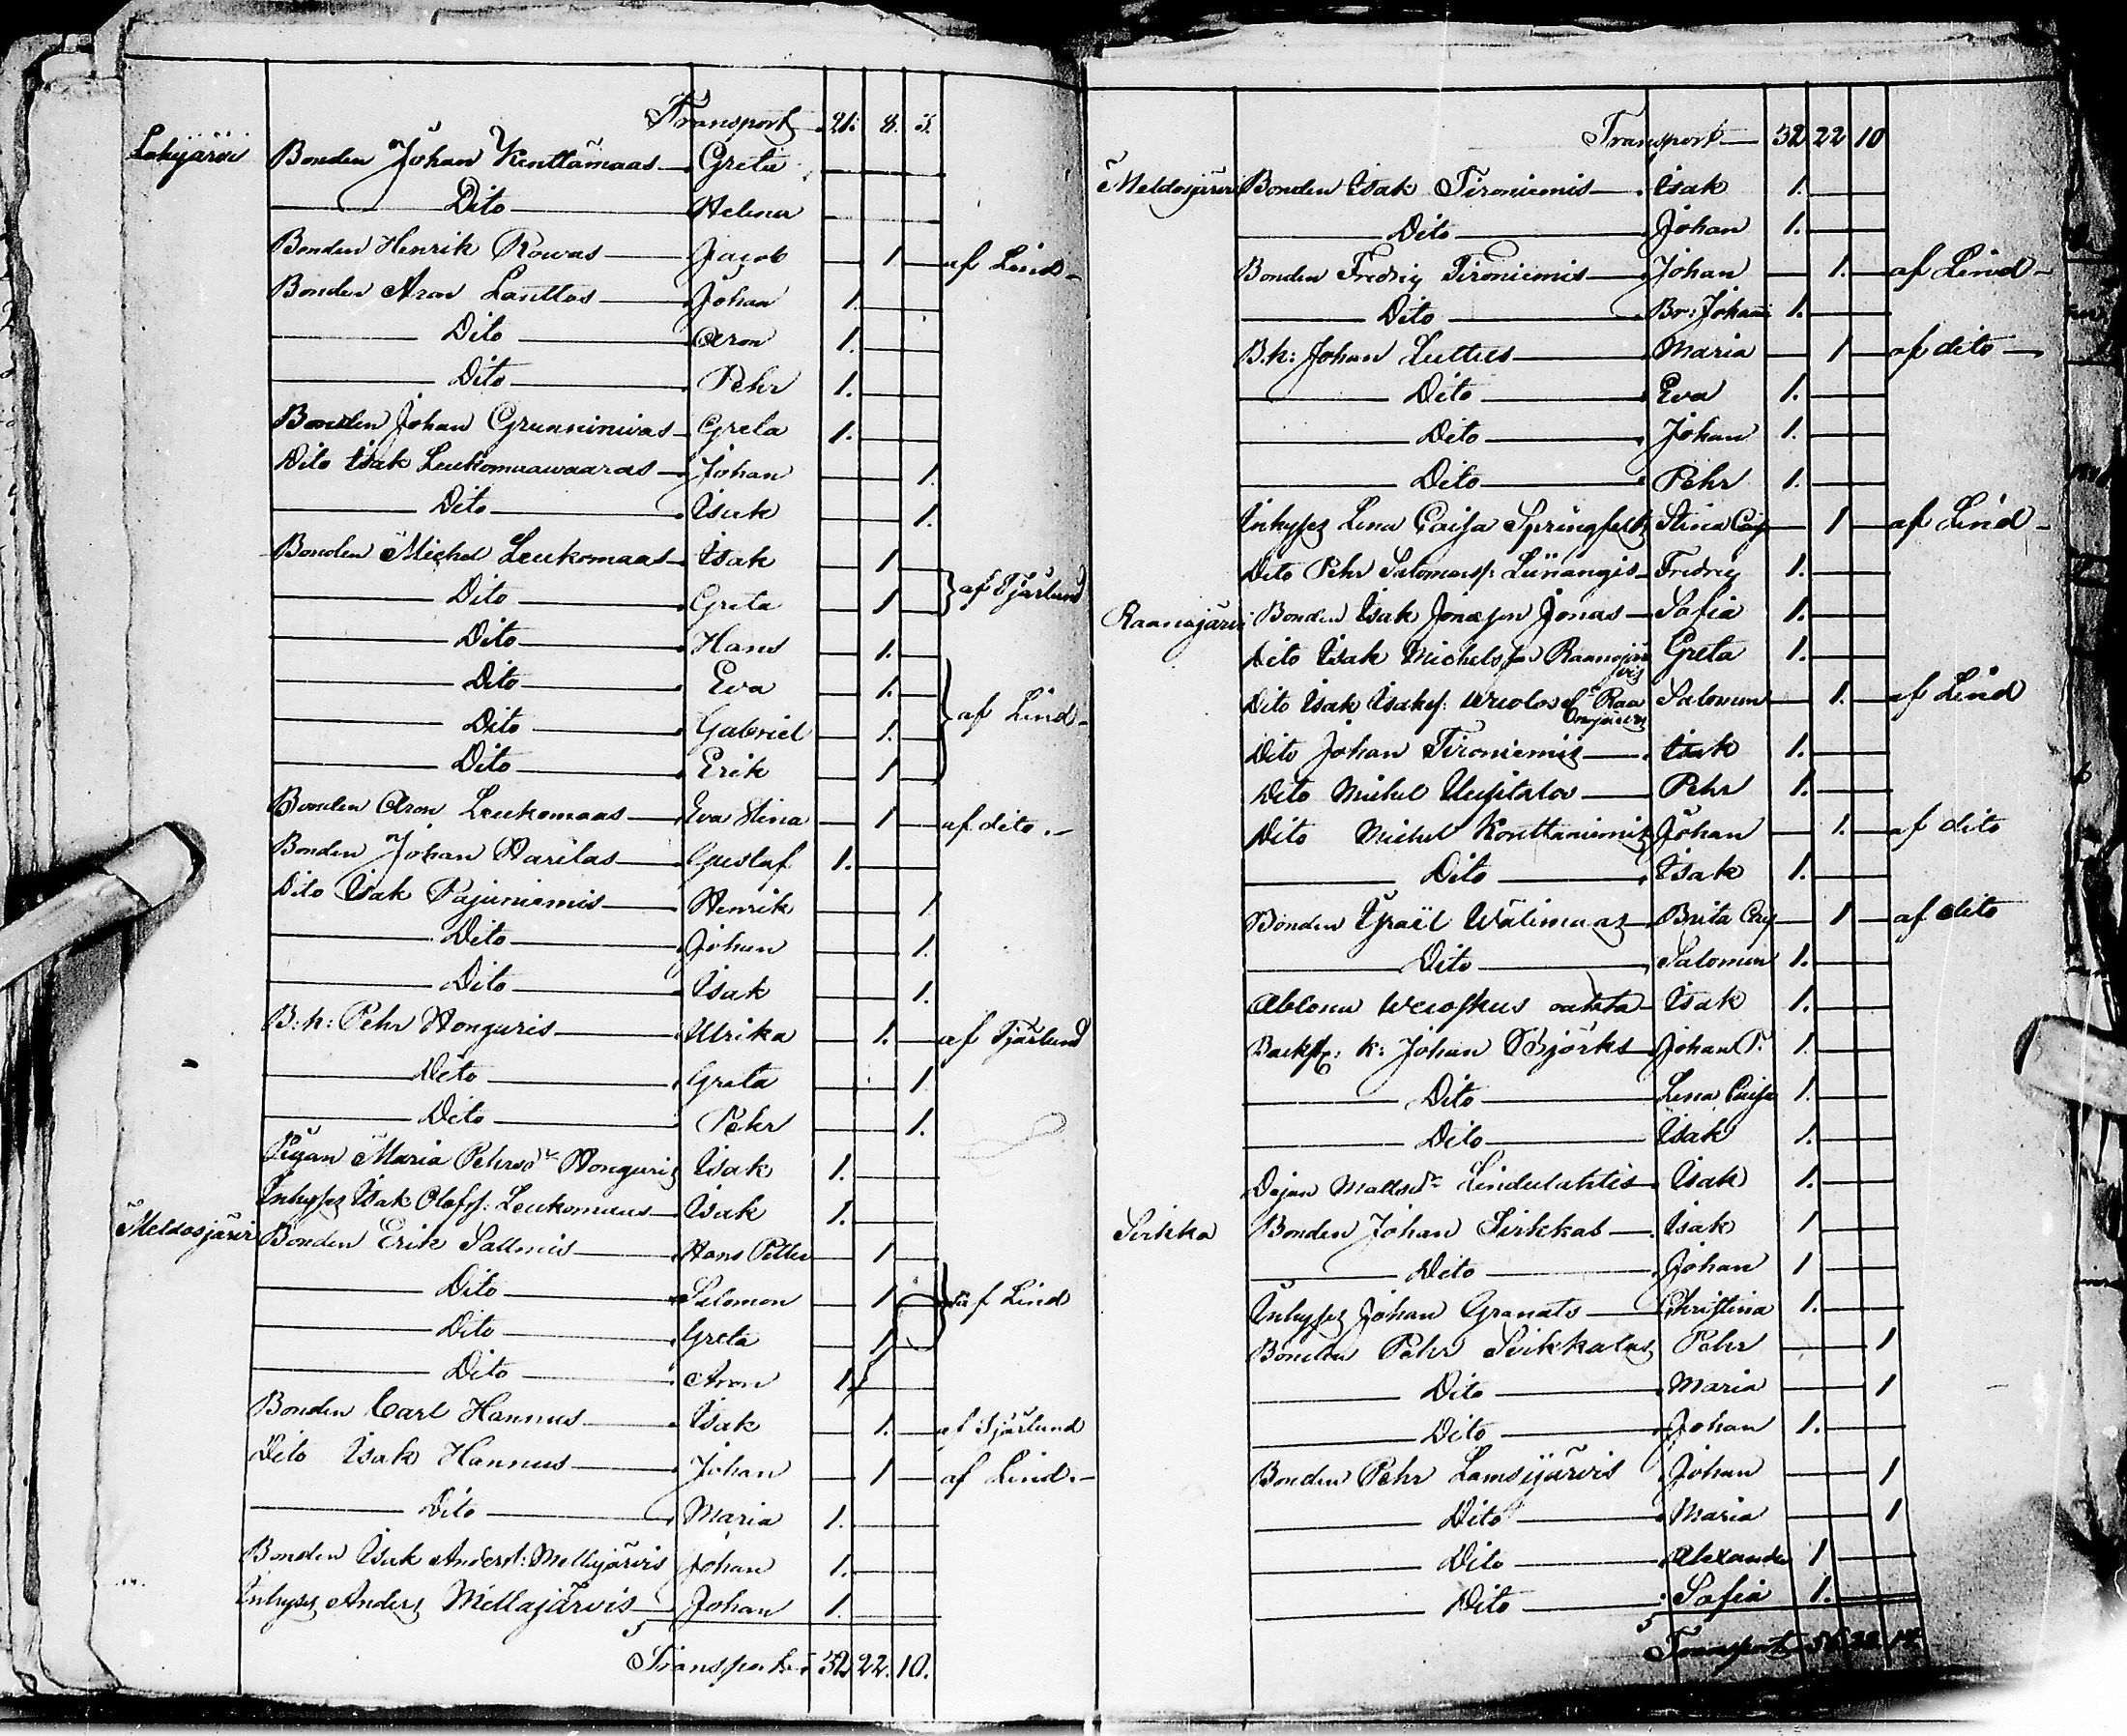 Transport 21. 8. 3.
Lohijärvi Bonden Johan Kenttämaas Greta
Dito Helena
Bonden Henrik Rowas Jacob 1 af Lind
Bonden Aron Lanttos Johan 1.
Dito Aron 1.
Dito Pehr 1.
Bonden Johan Grunnimivas Greta 1.
Dito Isak Leukomaawaaras Johan 1.
Dito Isak 1.
Bonden Michel Leukomaas Isak 1
Dito Greta 1 af Tjärlund
Dito Hans 1.
Dito Eva 1.
Dito Gabriel 1. af Lind
Dito Erik 1
Bonden Aron Leukomaas Eva Stina 1 af dito
Bonden Johan Harilas Gustaf 1.
Dito Isak Pajuniemis Henrik 1
Dito Johan 1.
Dito Isak 1.
B:k: Pehr Honguris Ulrika 1. af Tjärlund
Dito Greta 1.
Dito Pehr 1.
Pigan Maria Pehrsdr Honguris Isak 1.
Inhyses Isak Olofs: Leukomaas Isak 1.
Meldosjärvi Bonden Erik Sallmis Hans Petter 1
Dito Salomon 1 af Lind
Dito Greta 1
Dito Aron 1.
Bonden Carl Hannus Isak 1. af Tjärlund
Dito Isak Hannus Johan 1 af Lind
Dito Maria 1.
Bonden Isak Anders: Mellajärvis Johan 1.
Inhyses Anders Mellajärvis Johan 1.
Transport 32 22. 10.
Transport 32 22 10
Meldosjärvi Bonden Isak Tironiemis Isak 1.
Dito Johan 1.
Bonden Fredric Tironiemis Johan 1. af Lind
Dito Br: Johan 1.
B.k: Johan Luttus Maria 1 af dito
Dito Eva 1.
Dito Johan 1.
Dito Pehr 1.
Inhyses Lena Caisa Springfelts Stina Caj 1 af Lind
Dito Pehr Salomonss: Liinangis Fredric 1.
Raanojärvi Bonden Isak Jonasson Jonas Sofia 1.
Dito Isak Michelsson Raanojärvis Greta 1.
Dito Isak Isaks: Raanojärvis Salomon 1. af Lind
Dito Johan Tironiemis Isak 1.
Dito Michel Uusitalos Pehr 1.
Dito Michel Konttaniemis Johan 1. af dito
Dito Isak 1.
Bonden Israël Wälimaas Brita Caj 1 af dito
Dito Salomon 1.
Isak 1.
Johan Björks Johan P. 1.
Dito Lena Caisa 1.
Dito Isak 1.
Mattsdr Lindulahtis Isak 1.
Sirkka Bonden Johan Sirkkas Isak 1
Dito Johan 1
Inhyses Johan Granats Christina 1.
Bonden Pehr Sirkkalas Pehr 1
Dito Maria 1
Dito Johan 1.
Bonden Pehr Lamsijärvis Johan 1
Dito Maria 1
Dito Alexander 1
Dito Sofia 1.
Transport